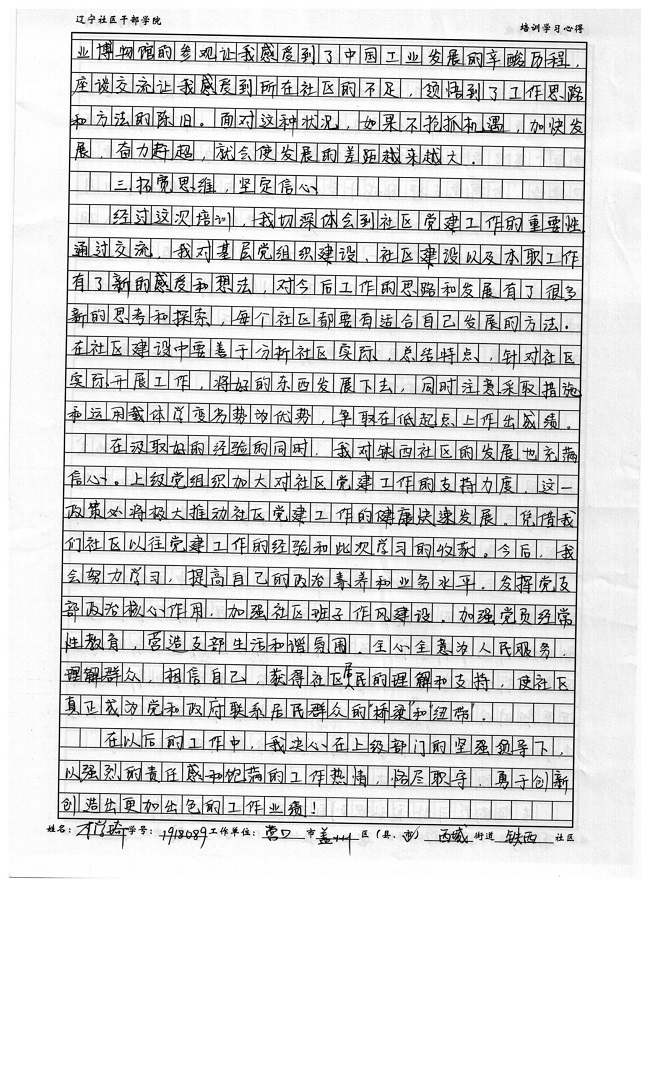 辽宁社区干部学院 培训学习心得
业博物馆的参观让我感受到了中国工业发展的辛酸历程，
座谈交流让我感受到所在社区的不足，领悟到了工作思路
和方法的陈旧。面对这种状况，如果不抢抓机遇，加快发
展，奋力赶超，就会使发展的差距越来越大．
三拓宽思维，坚定信心
经过这次培训，我切深体会到社区党建工作的重要性，
通过交流，我对基层党组织建设、社区建设以及本职工作
有了新的感受和想法，对今后工作的思路和发展有了很多
新的思考和探索，每个社区都要有适合自己发展的方法。
在社区建设中要善于分析社区实际，总结特点，针对社区
实际开展工作，将好的东西发展下去，同时注意采取措施
和运用载体学变劣势为优势，争取在低起点上作出成绩。
在汲取好的经验的同时，我对铁西社区的发展也充满
信心。上级党组织加大对社区党建工作的支持力度，这一
政策必将极大推动社区党建工作的健康快速发展。凭借我
们社区以往党建工作的经验和此次学习的收获。今后，我
会努力学习，提高自己的政治素养和业务水平．发挥党支
部政治核心作用，加强社区班子作风建设．加强党员经常
性教育，营造支部生活和谐氛围．全心全意为人民服务．
理解群众，相信自己，获得社区居民的理解和支持，使社区
真正成为党和政府联系居民群众的“桥梁”和“纽带”．
在以后的工作中，我决心在上级部门的坚强领导下，
以强烈的责任感和饱满的工作热情，恪尽职守．勇于创新
创造出更加出色的工作业绩！
姓名： 学号：1918089 工作单位：营口 市 盖州 区（县、市） 西城 街道 铁西 社区